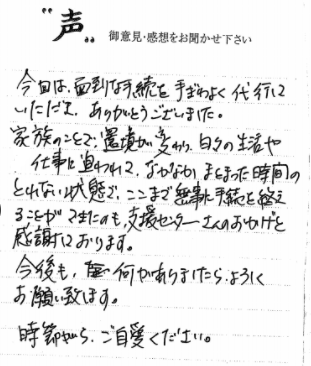 "声" 御意見・感想をお聞かせ下さい
今回は、面倒な手続を手ぎわよく代行して
いただき、ありがとうございました。
家族のことで、環境が変わり、日々の生活や
仕事に追われて、なかなかまとまった時間の
とれない状態で、ここまで無事に手続を終え
ることができたのも、支援センターさんのおかげと
感謝しております。
今後も、何かありましたら、よろしく
お願い致します。
時節がら、ご自愛ください。